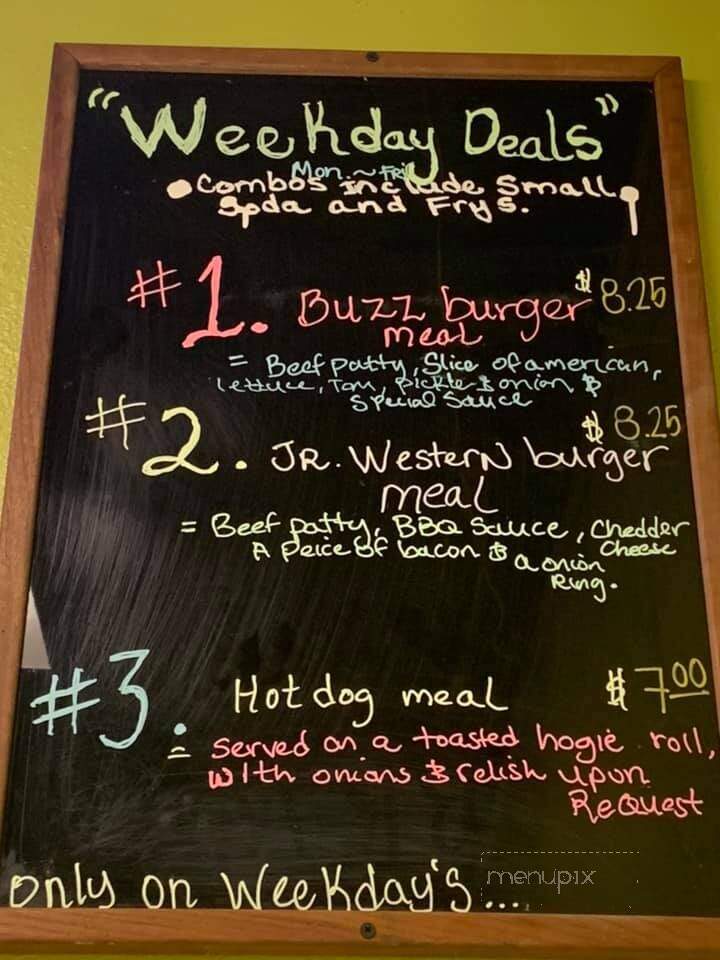 "Weekday Deals"
Mon. ~ Fri
• Combos include Small
Soda and Frys.
#1. Buzz burger $8.25
meal
= Beef patty, Slice of american,
lettuce, Tom, pickle & onion &
Special Sauce
#2. JR. Western burger $8.25
meal
= Beef patty, BBQ Sauce, Chedder
Cheese
A peice of bacon & a onion
Ring.
#3. Hot dog meal $7.00
= served on a toasted hogie roll,
with onions & relish upon
Request
only on Weekday's...
menupix